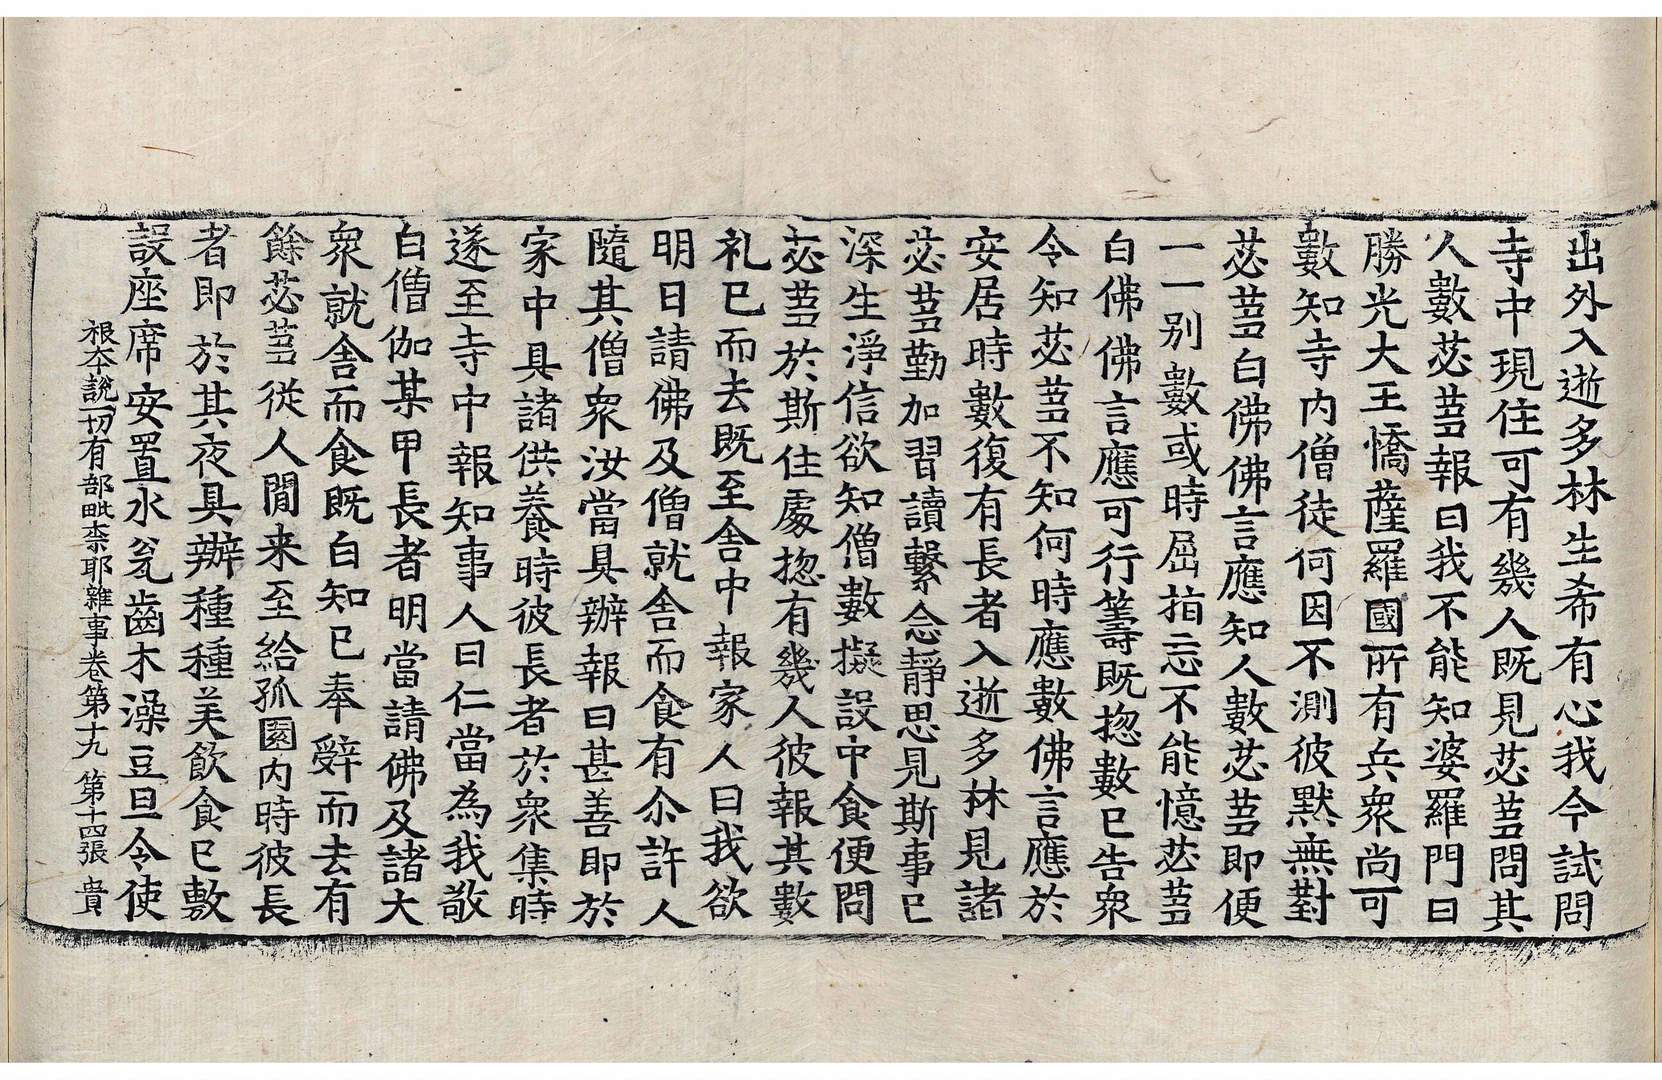 出外入逝多林生希有心我今試問
寺中現住可有幾人既見苾蒭問其
人數苾蒭報曰我不能知婆羅門曰
勝光大王憍薩羅國所有兵衆尚可
數知寺内僧徒何因不測彼默無對
苾蒭白佛佛言應知人數苾蒭即便
一一别數或時屈指忘不能憶苾蒭
白佛佛言應可行籌既揔數已告衆
令知苾蒭不知何時應數佛言應於
安居時數復有長者入逝多林見諸
苾蒭勤加習讀繫念靜思見斯事已
深生淨信欲知僧數擬設中食便問
苾蒭於斯住處揔有幾人彼報其數
礼已而去既至舍中報家人曰我欲
明日請佛及僧就舍而食有尒許人
隨其僧衆汝當具辦報曰甚善即於
家中具諸供養時彼長者於衆集時
遂至寺中報知事人曰仁當為我敬
白僧伽某甲長者明當請佛及諸大
衆就舍而食既白知已奉辝而去有
餘苾蒭從人間来至給孤園内時彼長
者即於其夜具辦種種美飲食已敷
設座席安置水瓮齒木澡豆旦令使
根本說一切有部毗柰耶雜事卷第十九　第十四張　貴